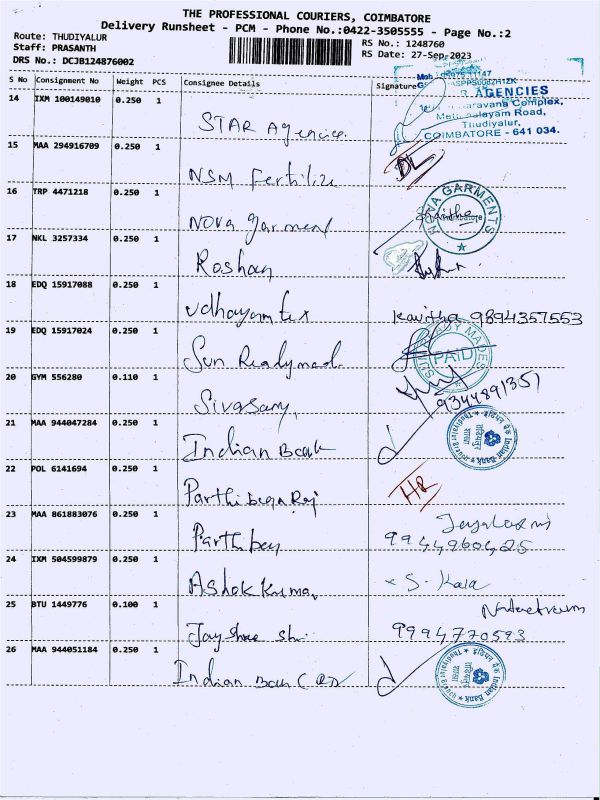 THE PROFESSIONAL COURIERS, COIMBATORE
Delivery Runsheet - PCM - Phone No.:0422-3505555 - Page No.:2
Route: THUDIYALUR
Staff: PRASANTH
DRS No.: DCJB124876002
RS No.: 1248760
RS Date: 27-Sep-2023
S No Consignment No Weight PCS Consignee Details Signature
AGENCIES
Complex,
Road,
Thudiyalur,
COIMBATORE - 641 034.
14 IXM 100149010 0.250 1
STAR Agencies
15 MAA 294916709 0.250 1
NSM Fertilize
DL
16 TRP 4471218 0.250 1
Nova garment
NOVA GARMENTS
17 NKL 3257334 0.250 1
Roshan
18 EDQ 15917088 0.250 1
Udhayam tex
Kavitha 9894357553
19 EDQ 15917024 0.250 1
Sun Readymad
PAID
20 GYM 556280 0.110 1
Sivasamy
9344891351
21 MAA 944047284 0.250 1
Indian Bank
Indian Bank
22 POL 6141694 0.250 1
Parthiban Raj
HR
23 MAA 861883076 0.250 1
Parthiban
Jayalaxmi
24 IXM 504599879 0.250 1
Ashok Kumar
S. Kala
25 BTU 1449776 0.100 1
Jayshree Shri
9994770593
26 MAA 944051184 0.250 1
Indian Bank
Indian Bank